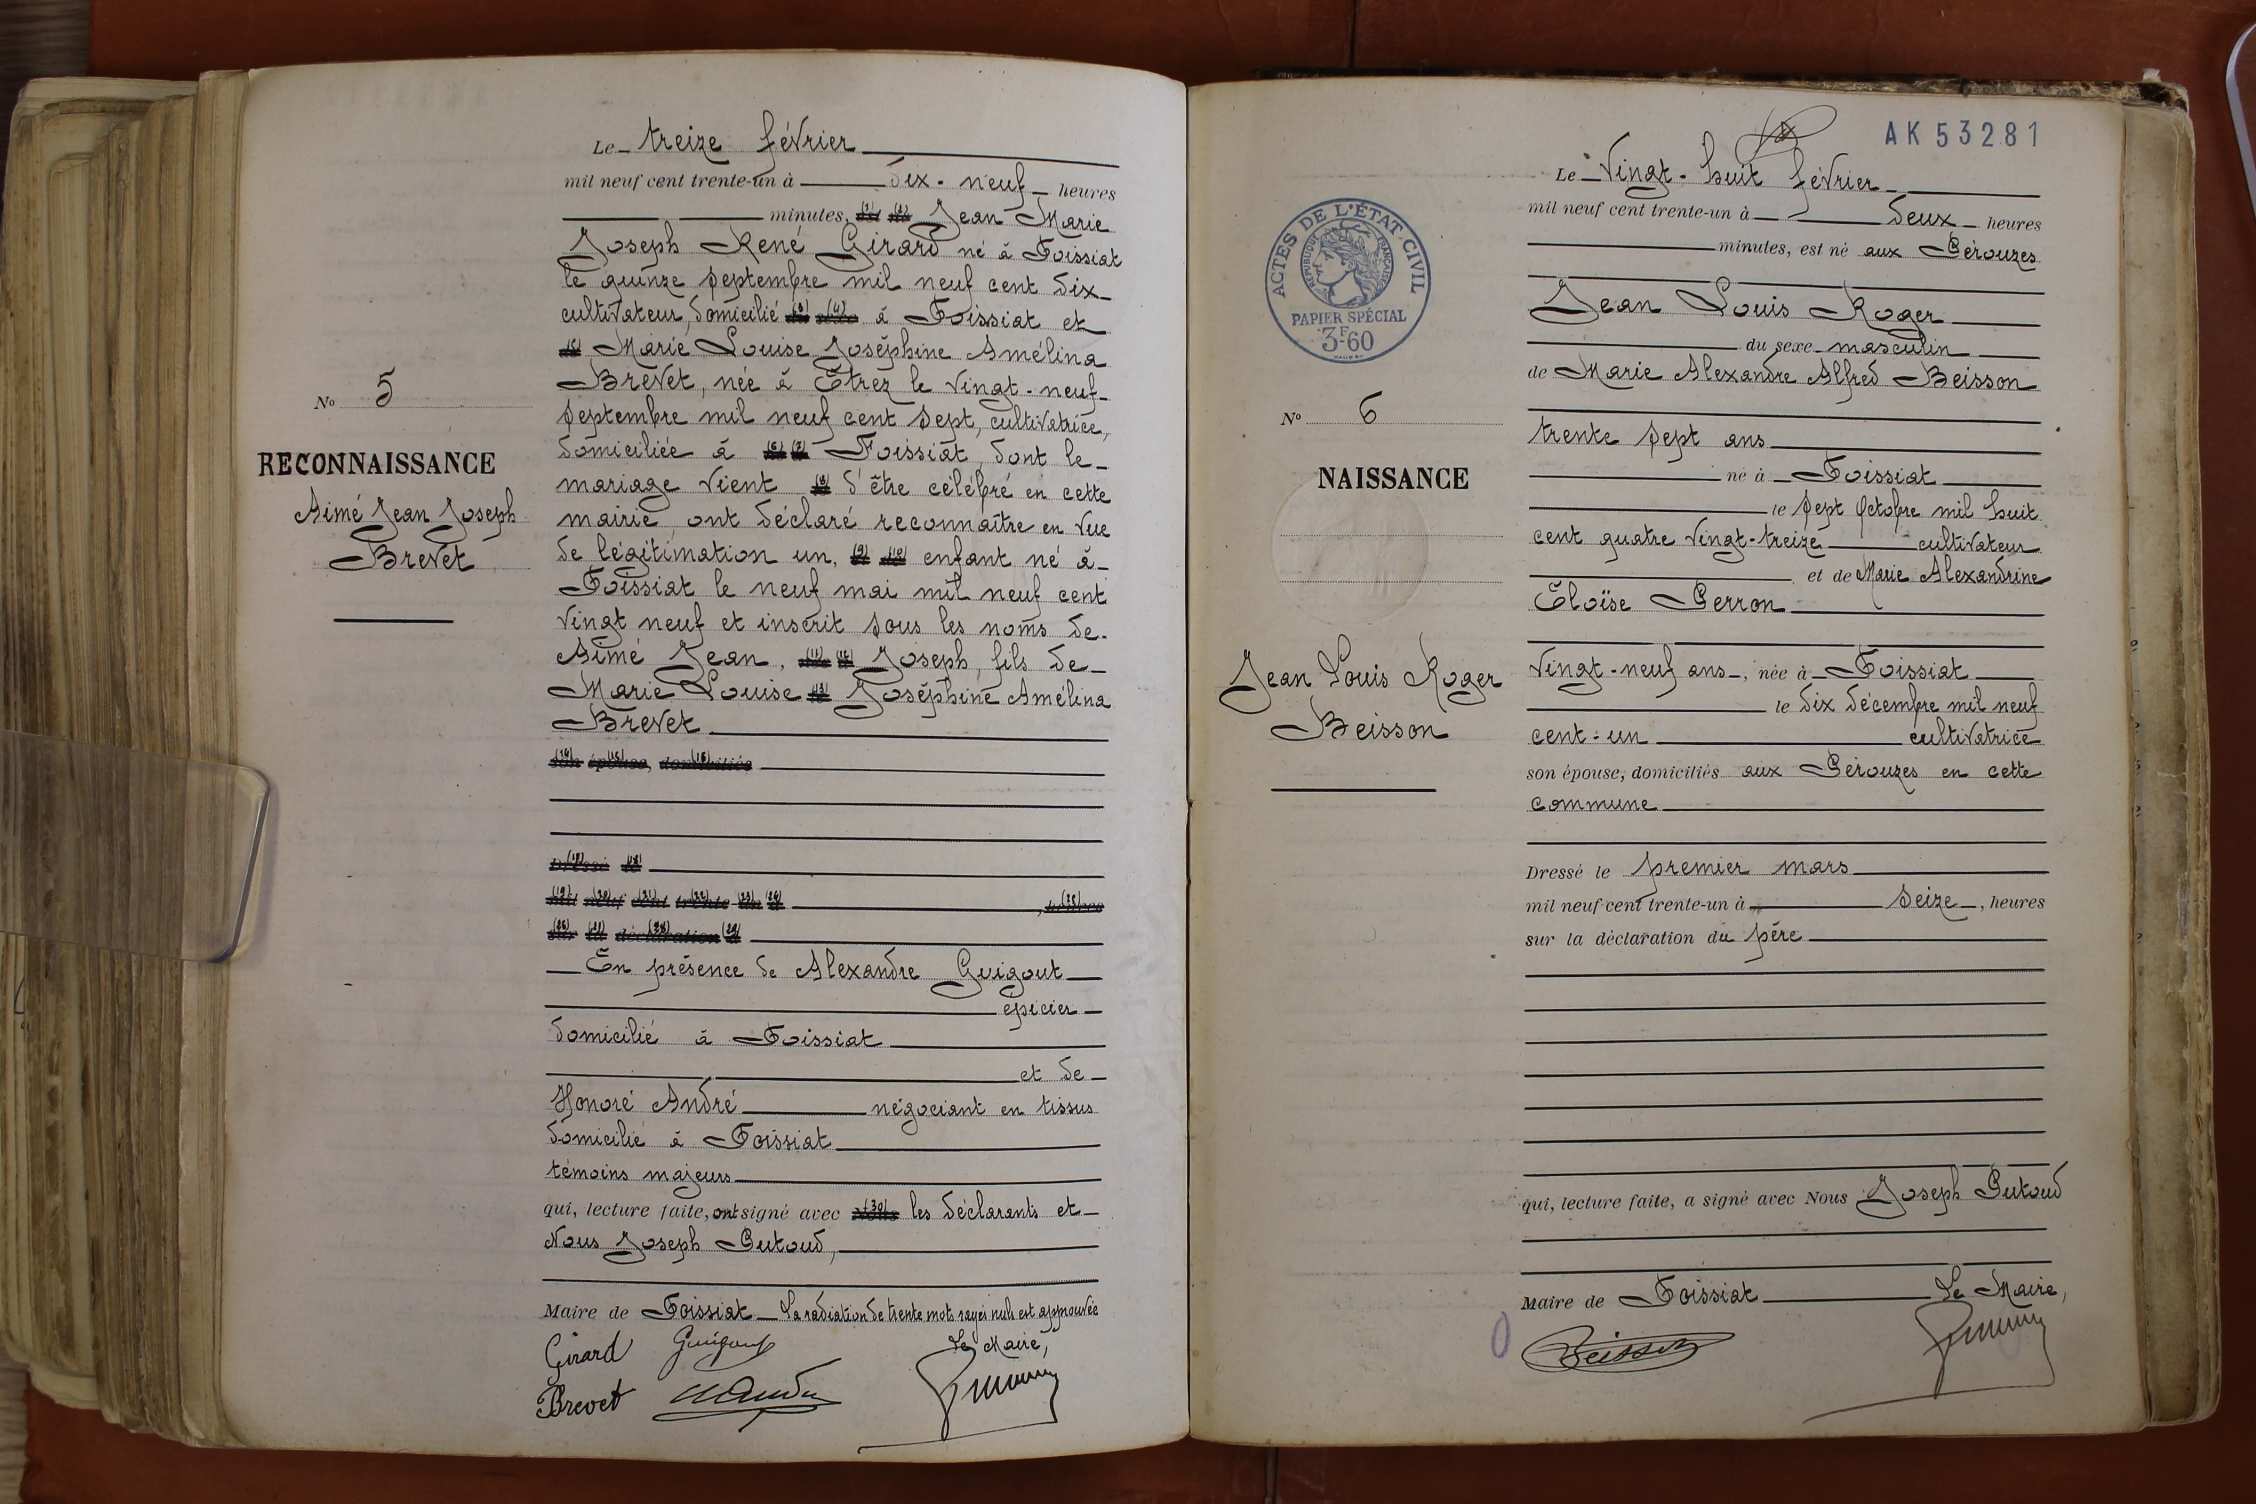 Le treize février
mil neuf cent trente-un à dix-neuf heures
minutes, (1) (2) Jean Marie
Joseph René Girard né à Foissiat
le quinze septembre mil neuf cent dix
cultivateur, domicilié (3) (4) à Foissiat et
(5) Marie Louise Joséphine Amélina
Brevet, née à Étrez le vingt-neuf
septembre mil neuf cent sept, cultivatrice,
domiciliée à (6) (7) Foissiat, dont le
mariage vient (8) d'être célébré en cette
mairie, ont déclaré reconnaître en vue
de légitimation un, (9) (10) enfant né à
Foissiat le neuf mai mil neuf cent
vingt neuf et inscrit sous les noms de
Aimé Jean, (11) (12) Joseph, fils de
Marie Louise (13) Joséphine Amélina
Brevet
son (14) épouse, (15) domiciliés (16)
Dressé (17) le (18)
mil (19) neuf (20) cent (21) trente (22) un (23) à (24) , heures (25)
sur (26) la (27) déclaration (28) d (29)
En présence de Alexandre Guigout
épicier
domicilié à Foissiat
et de
Honoré André négociant en tissus
domicilié à Foissiat
témoins majeurs
qui, lecture faite, ont signé avec Nous (30) les déclarants et
Nous Joseph Putoud,
Maire de Foissiat La radiation de trente mots rayés nuls est approuvée
Le Maire,
Girard Guigout
Brevet
No 5
RECONNAISSANCE
Aimé Jean Joseph
Brevet
AK 53281
ACTES DE L'ÉTAT-CIVIL
RÉPUBLIQUE FRANÇAISE
PAPIER SPÉCIAL
3F60
No 6
NAISSANCE
Jean Louis Roger
Beisson
Le Vingt-huit février
mil neuf cent trente-un à deux heures
minutes, est né aux Pérouzes
Jean Louis Roger
du sexe masculin
de Marie Alexandre Alfred Beisson
trente sept ans
né à Foissiat
le sept octobre mil huit
cent quatre vingt-treize cultivateur
et de Marie Alexandrine
Éloïse Perron
vingt-neuf ans, née à Foissiat
le dix décembre mil neuf
cent-un cultivatrice
son épouse, domiciliés aux Pérouzes en cette
commune
Dressé le premier mars
mil neuf cent trente-un à seize, heures
sur la déclaration du père
qui, lecture faite, a signé avec Nous Joseph Putoud
Maire de Foissiat Le Maire,
Beisson